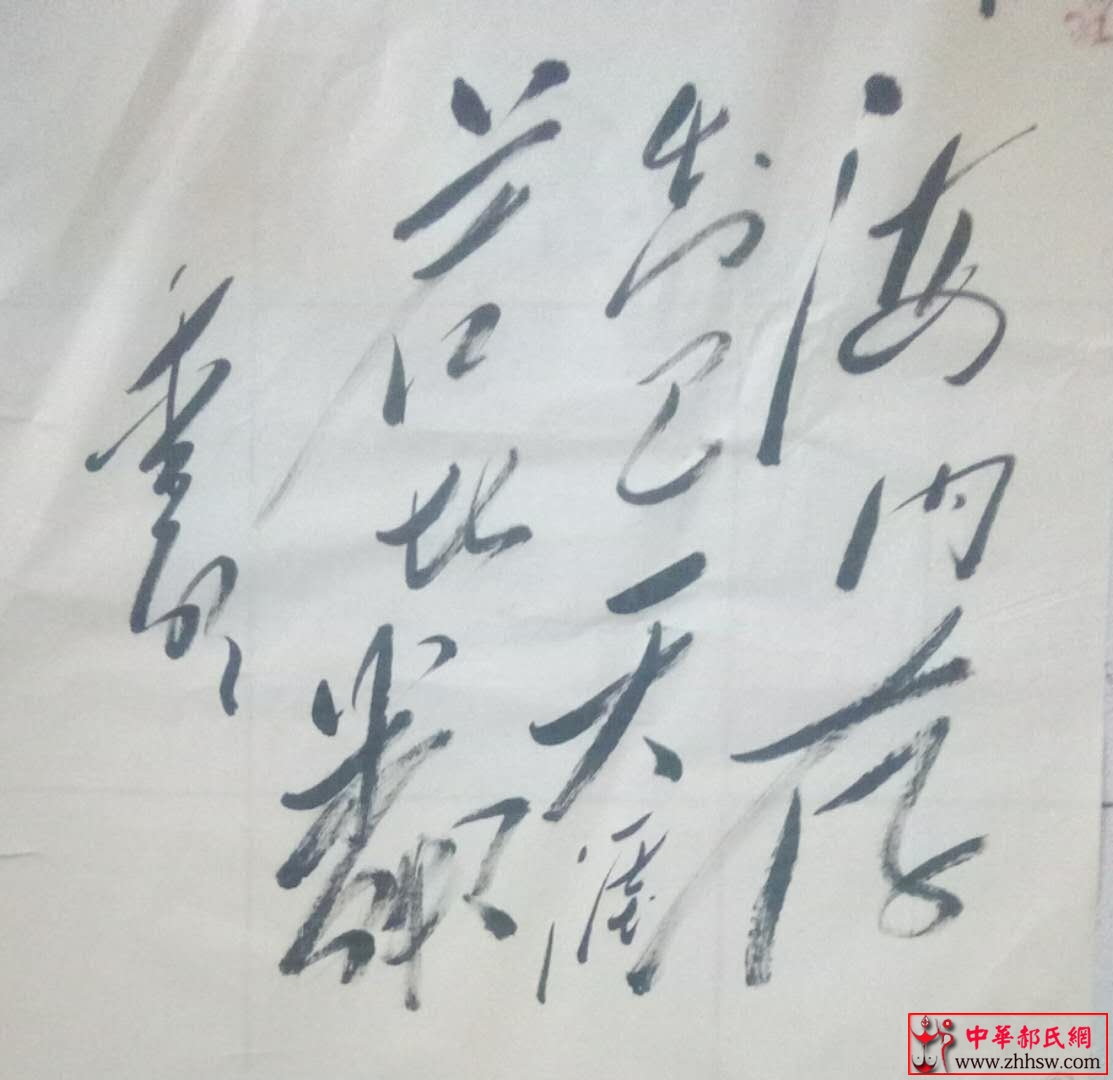 海内存
知己天涯
若比鄰
中華郝氏網
www.zhhsw.com